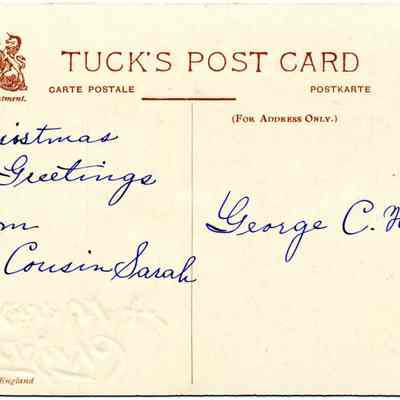 TUCK'S POST CARD
CARTE POSTALE
POSTKARTE
(FOR ADDRESS ONLY.)
Greetings
Cousin Sarah
George C.
England